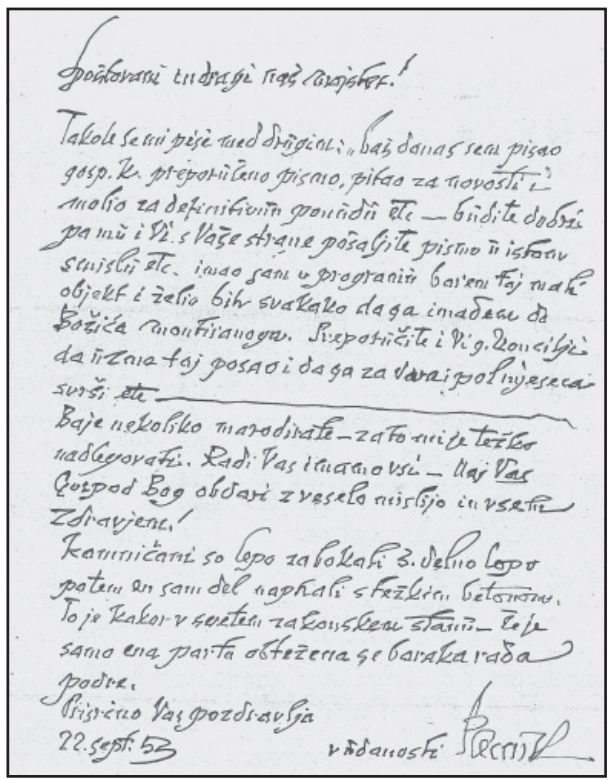 Spoštovani in dragi naš mojster!
Takole se mi piše med drugim: „baš danas sem pisao
gosp. K. preporučeno pismo, pitao za novosti i
molio za definitivnu ponudu etc — budite dobri
pa mu i Vi s Vaše strane pošaljite pismo u istom
smislu etc. imao sam u programu barem taj mali
objekt i želio bih svakako da ga imadem do
Božića montiranoga. Preporučite i Vi g.
da uzme taj posao i da ga za dva i pol mjeseca
svrši etc
Baje nekoliko marodirate – zato mi je težko
nadlegovati. Radi Vas imamo vsi – naj Vas
Gospod Bog obdari z veselo mislijo in vsem
Zdravjem!
Kamničani so lepo zabokali 3. delno lepo
potem en sam del naphali s težkim betonom.
To je kakor v svetem zakonskem stanu – če je
samo ena partu obtežena se baraka rada
podre.
Prisrčno Vas pozdravlja
22. sept. 53 v udanosti Plečnik